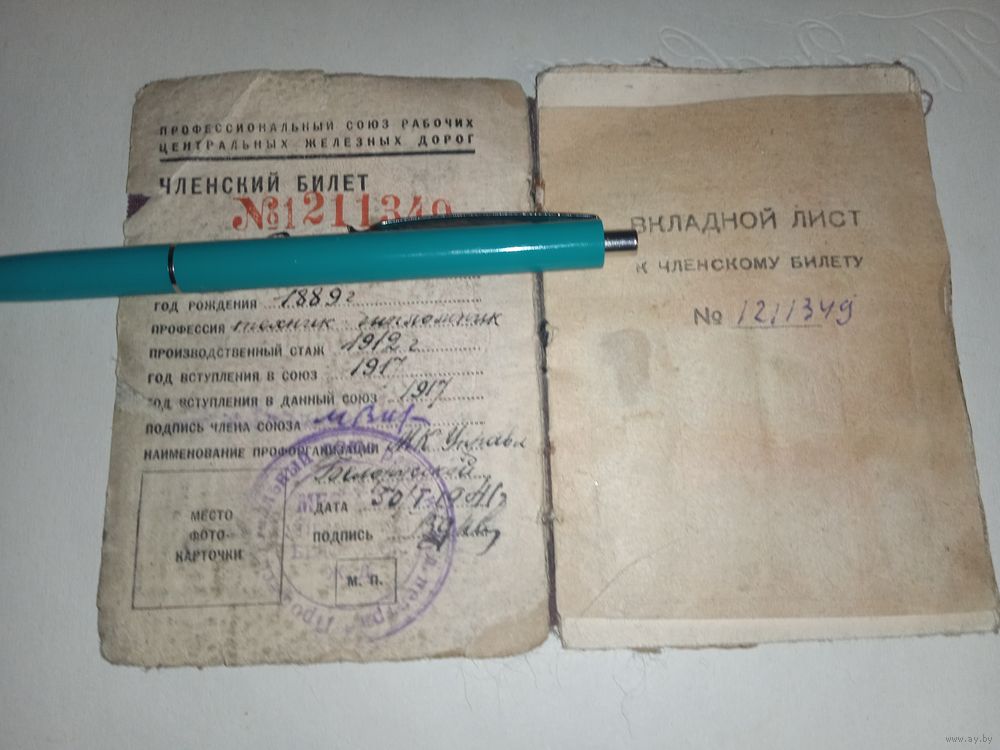 ПРОФЕССИОНАЛЬНЫЙ СОЮЗ РАБОЧИХ
ЦЕНТРАЛЬНЫХ ЖЕЛЕЗНЫХ ДОРОГ
ЧЛЕНСКИЙ БИЛЕТ
№1211349
ГОД РОЖДЕНИЯ 1889 г
ПРОФЕССИЯ техник
ПРОИЗВОДСТВЕННЫЙ СТАЖ 1912 г
ГОД ВСТУПЛЕНИЯ В СОЮЗ 1917
ГОД ВСТУПЛЕНИЯ В ДАННЫЙ СОЮЗ 1917
ПОДПИСЬ ЧЛЕНА СОЮЗА
НАИМЕНОВАНИЕ ПРОФОРГАНИЗАЦИИ МК
ДАТА
ПОДПИСЬ
МЕСТО
ФОТО-
КАРТОЧКИ
М. П.
ВКЛАДНОЙ ЛИСТ
К ЧЛЕНСКОМУ БИЛЕТУ
№ 1211349
www.ay.by